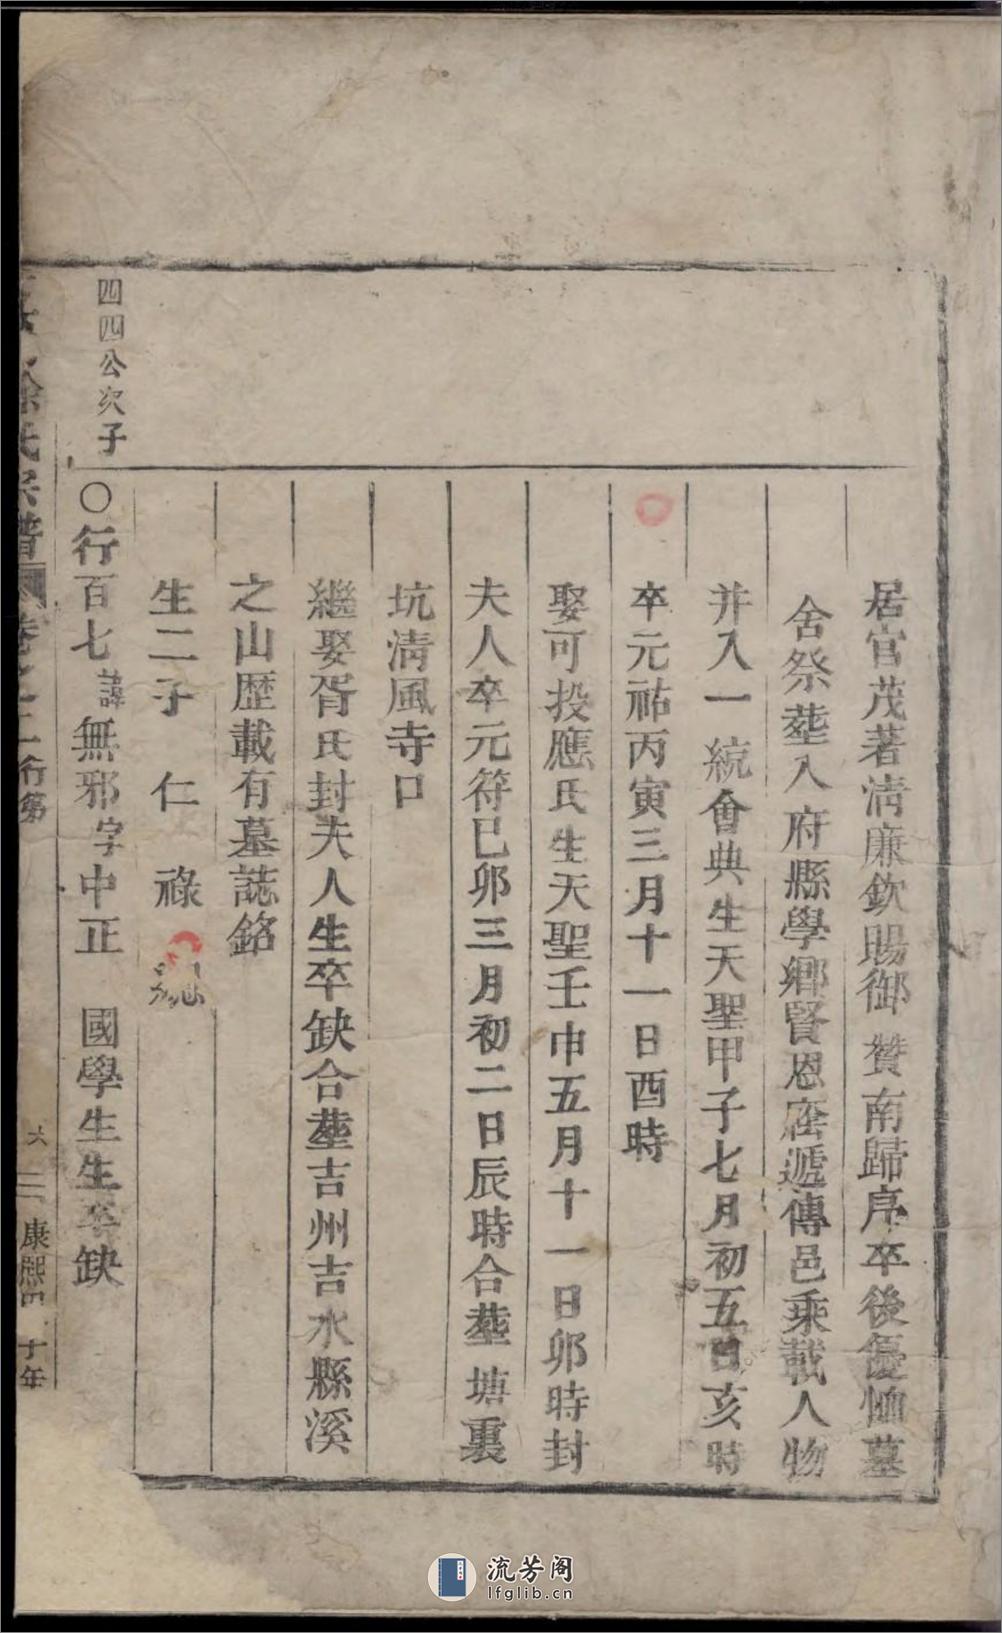 居官茂著清廉欽賜御贊南歸序卒後優恤墓
舍祭塟入府縣學鄉賢恩廕遞傳邑乘載人物
并入一統會典生天聖甲子七月初五日亥時
卒元祐丙寅三月十一日酉時
娶可投應氏生天聖壬申五月十一日卯時封
夫人卒元符已卯三月初二日辰時合塟塘裏
坑清風寺口
繼娶胥氏封夫人生卒缺合塟吉州吉水縣溪
之山歷載有墓誌銘
生二子 仁 祿
四四公次子
○行百七諱無邪字中正 國學生生卒缺
氏宗譜 卷之二行第 六 康熙四十年
流芳阁
lfglib.cn